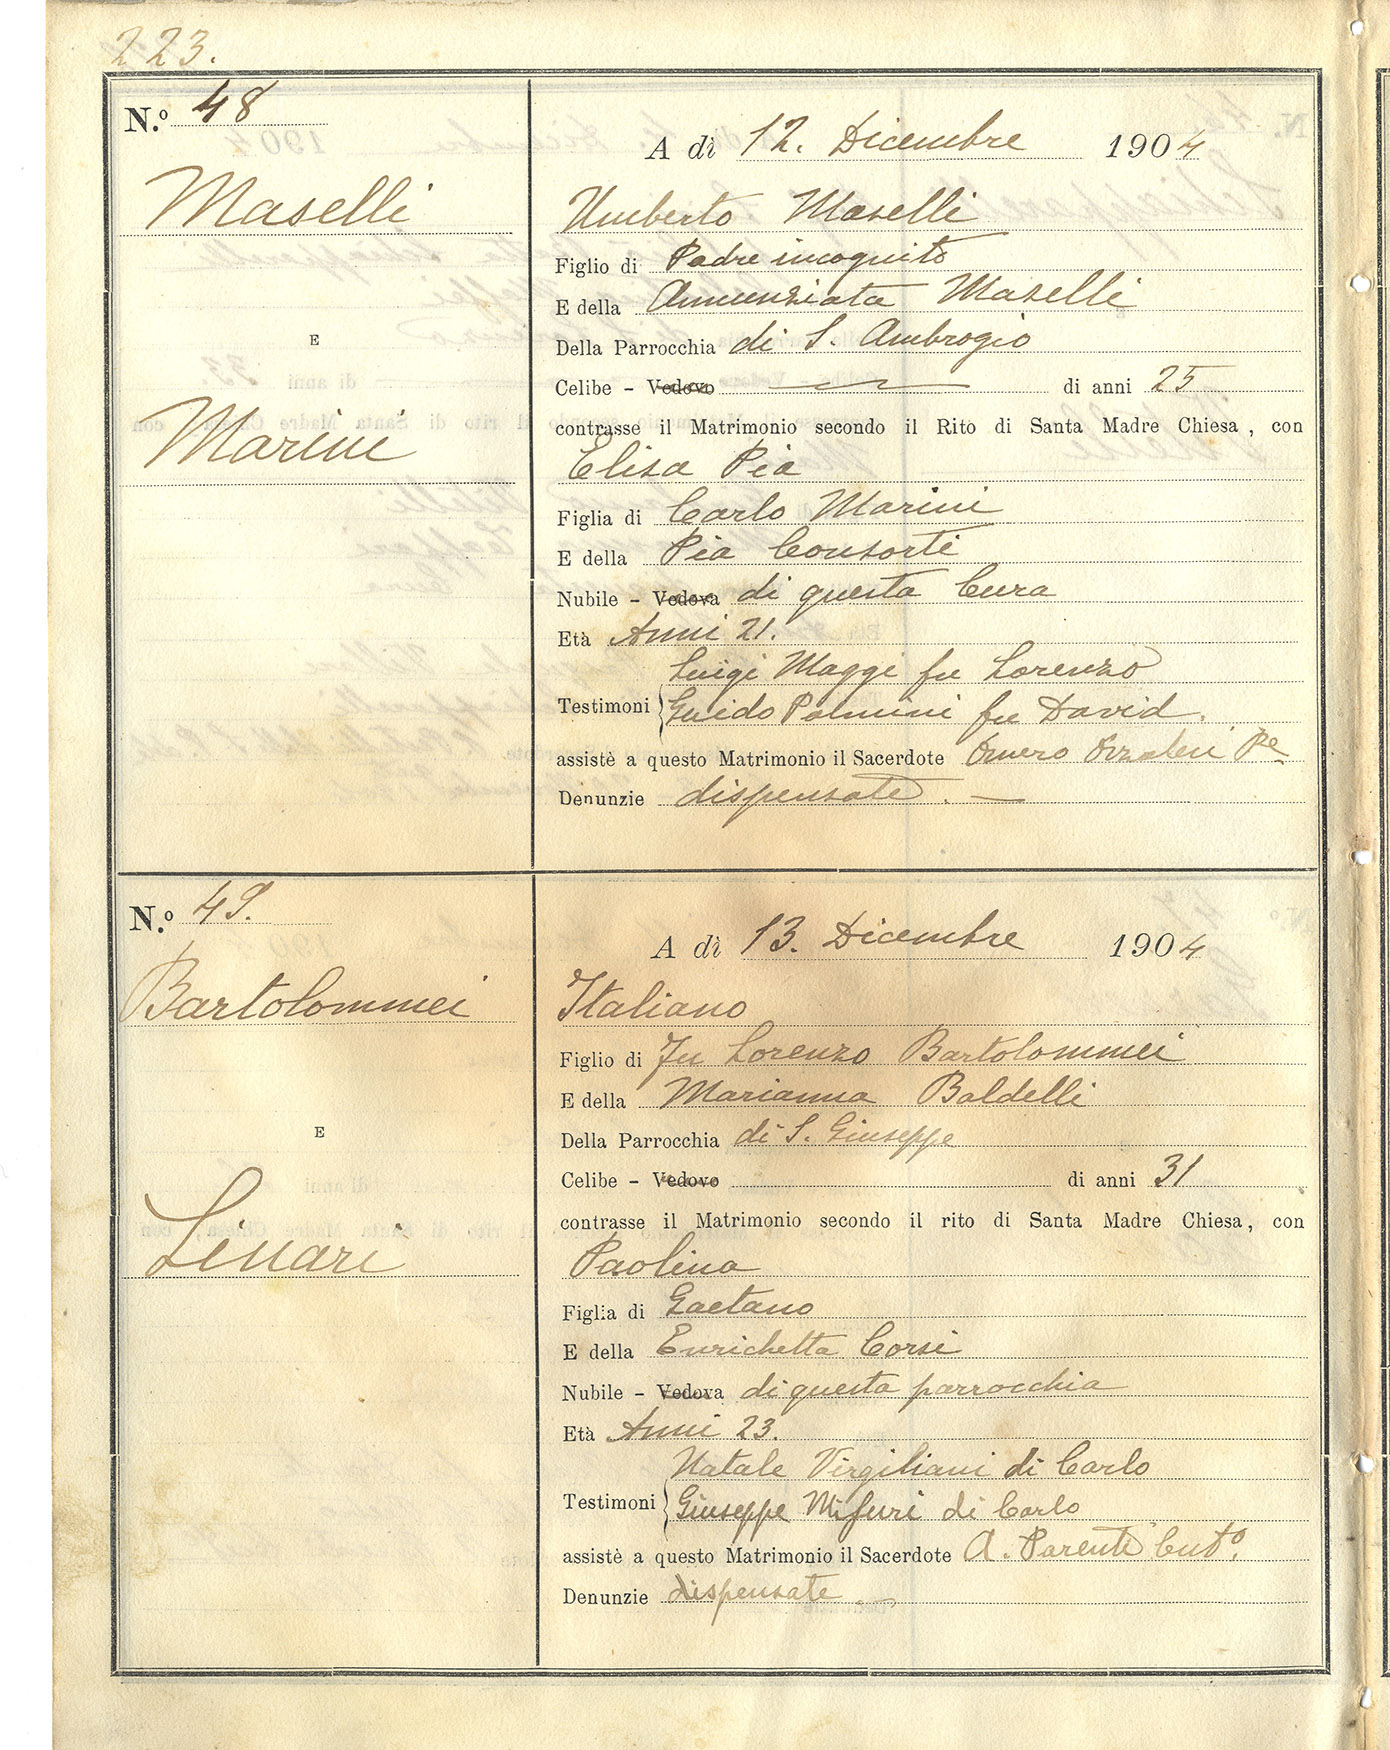 223.
N.o 48
Maselli
E
Marini
A dì 12. Dicembre 1904
Umberto Maselli
Figlio di Padre incognito
E della Annunziata Maselli
Della Parrocchia di S. Ambrogio
Celibe - Vedovo di anni 25
contrasse il Matrimonio secondo il Rito di Santa Madre Chiesa, con
Elisa Pia
Figlia di Carlo Marini
E della Pia Consorti
Nubile - Vedova di questa Cura
Età Anni 21.
Luigi Maggi fu Lorenzo
Testimoni Guido Palmini fu David.
assistè a questo Matrimonio il Sacerdote Omero
Denunzie dispensate. —
N.o 49.
Bartolommei
E
Linari
A dì 13. Dicembre 1904
Italiano
Figlio di Fu Lorenzo Bartolommei
E della Marianna Baldelli
Della Parrocchia di S. Giuseppe
Celibe - Vedovo di anni 31
contrasse il Matrimonio secondo il rito di Santa Madre Chiesa, con
Paolina
Figlia di Gaetano
E della Enrichetta Corsi
Nubile - Vedova di questa parrocchia
Età Anni 23.
Natale Virgiliani di Carlo
Testimoni Giuseppe Mifuri di Carlo
assistè a questo Matrimonio il Sacerdote A. Parenti
Denunzie dispensate. —